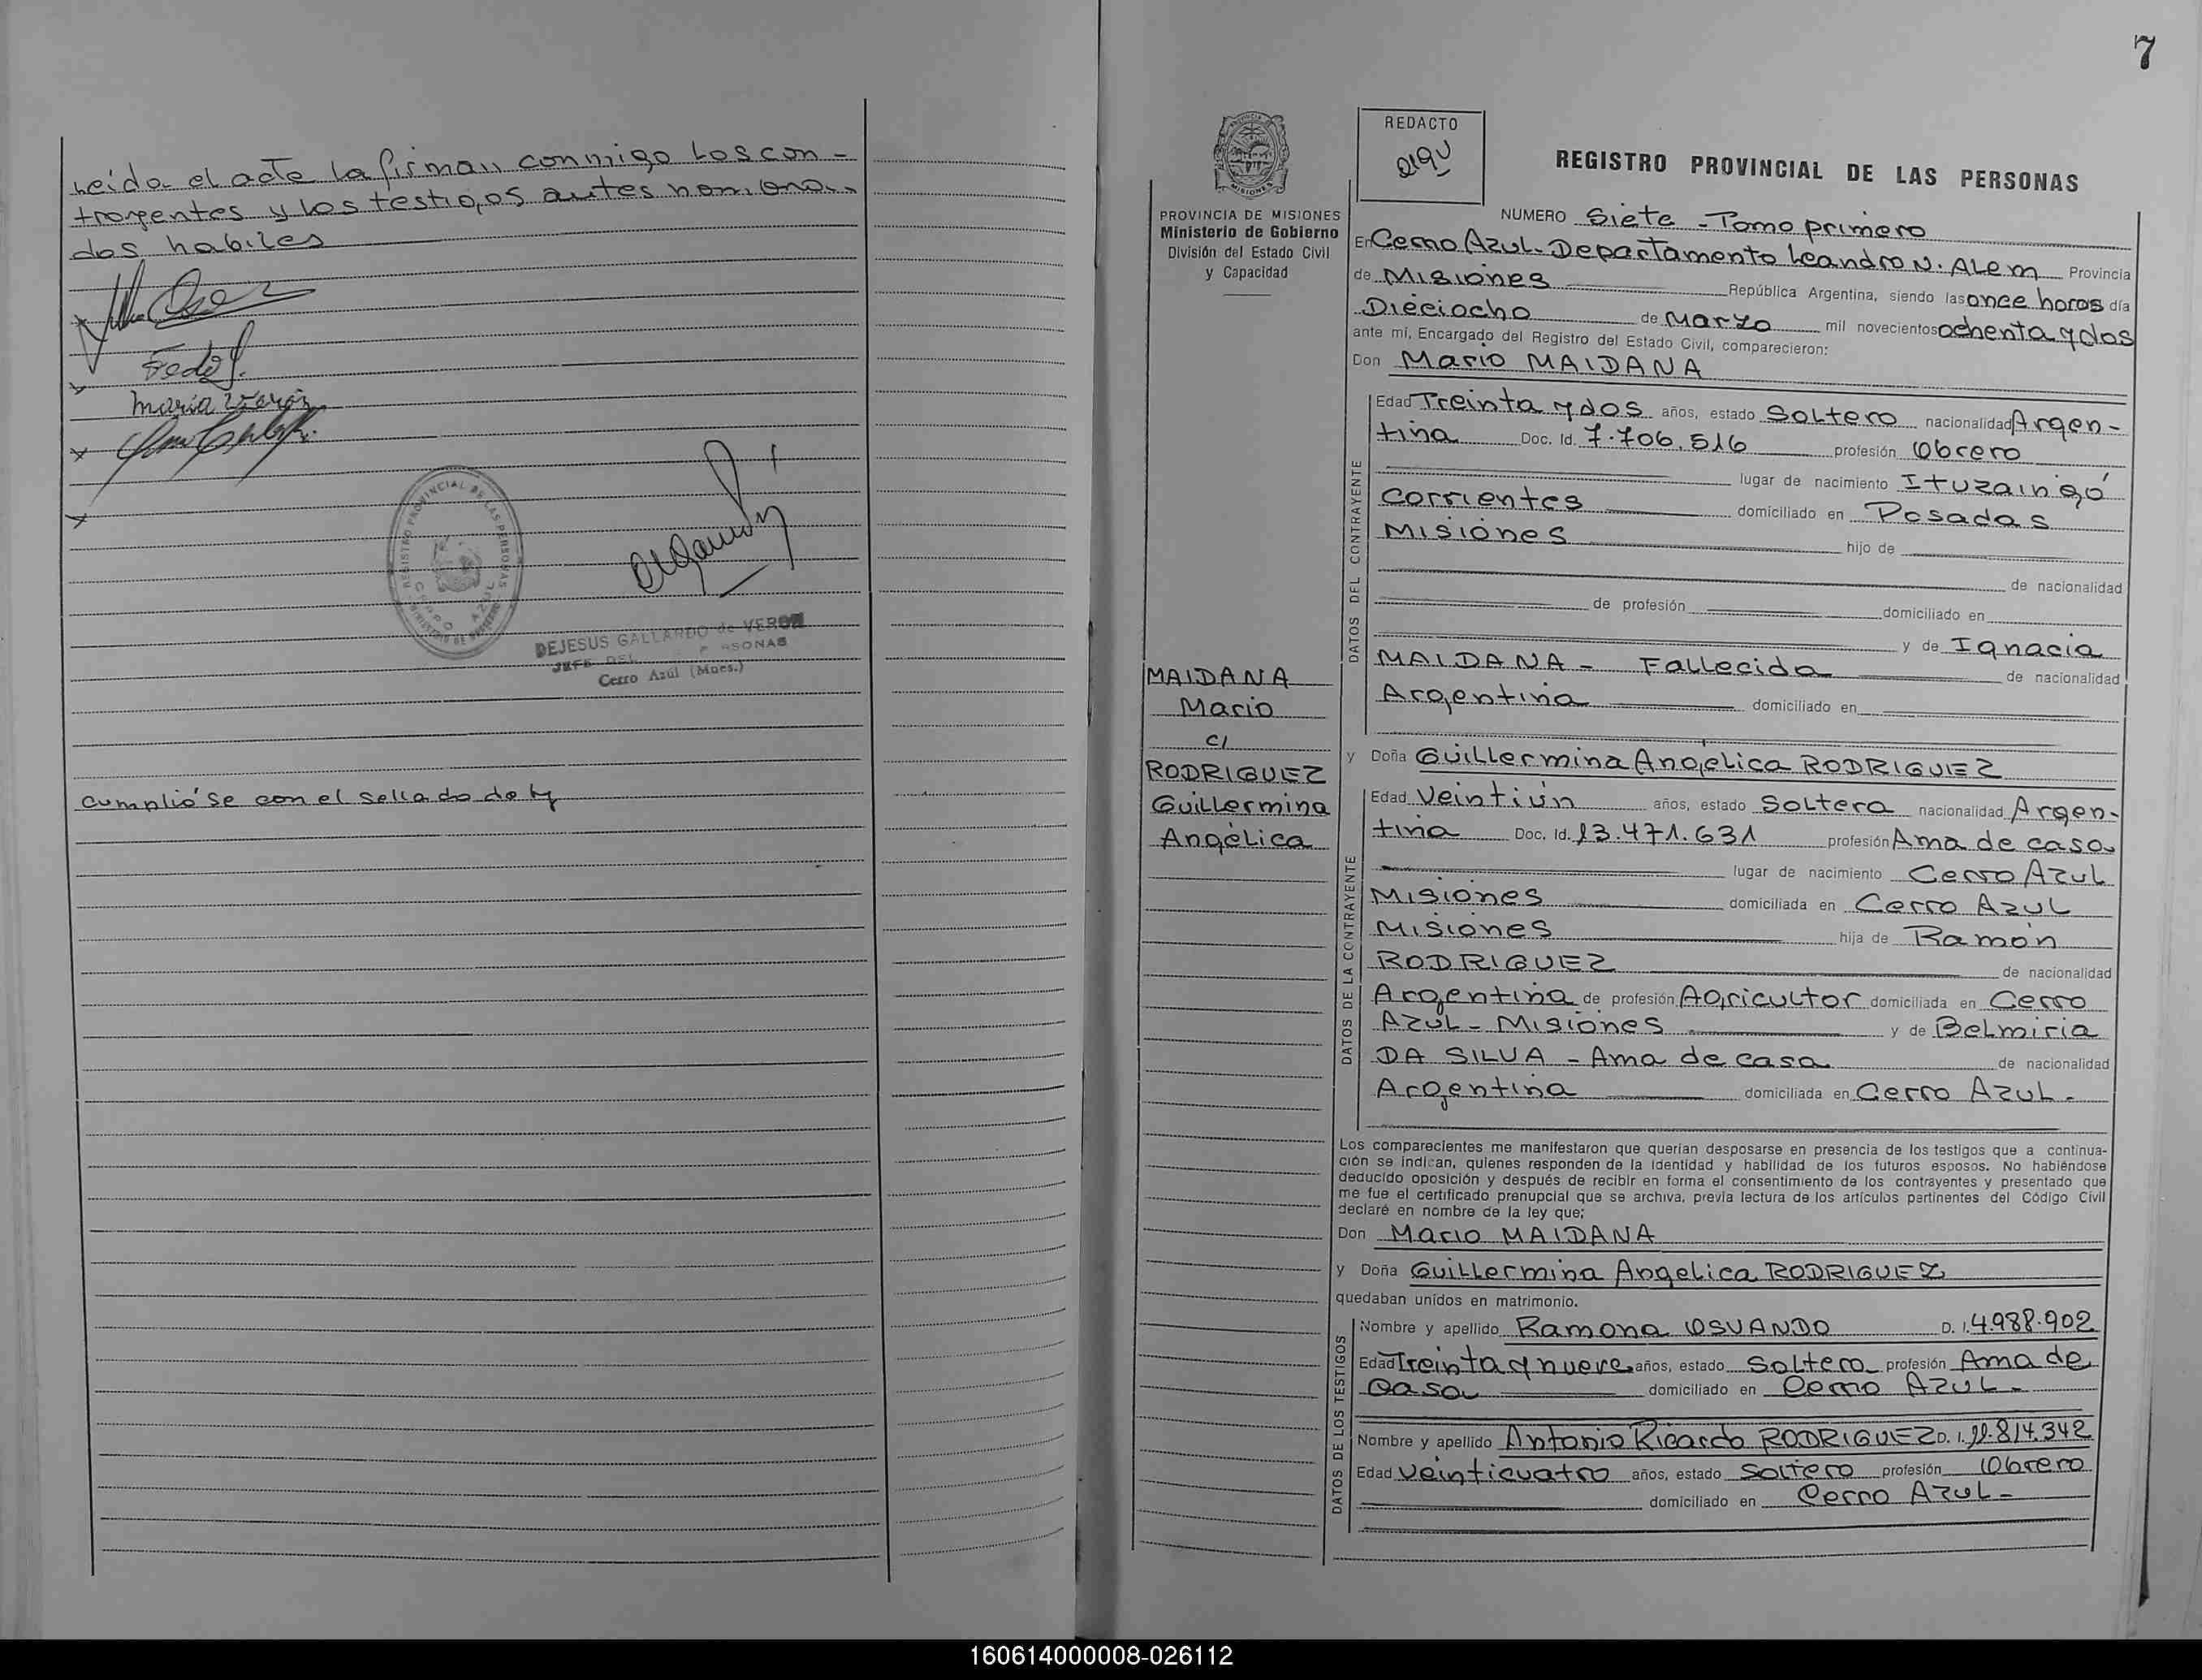 Leida el acta la firman conmigo los con-
trayentes y los testigos antes nombra-
dos habiles
Maria Verón
REGISTRO PROVINCIAL DE LAS PERSONAS
CERRO AZUL
DEJESUS GALLARDO de VERON
JEFE DEL PERSONAS
Cerro Azul (Mnes.)
Cumplió se con el sellado de ley
7
MISIONES
PROVINCIA DE MISIONES
Ministerio de Gobierno
División del Estado Civil
y Capacidad
MAIDANA
Mario
c/
RODRIGUEZ
Guillermina
Angélica
REDACTO
REGISTRO PROVINCIAL DE LAS PERSONAS
NUMERO Siete - Tomo primero
En Cerro Azul - Departamento Leandro N. Alem Provincia
de Misiones República Argentina, siendo las once horas día
Dieciocho de Marzo mil novecientos ochenta y dos
ante mí, Encargado del Registro del Estado Civil, comparecieron:
Don Mario MAIDANA
DATOS DEL CONTRAYENTE
Edad Treinta y dos años, estado Soltero nacionalidad Argen-
tina Doc. Id. 7.706.516 profesión Obrero
lugar de nacimiento Ituzaingó
Corrientes domiciliado en Posadas
Misiones hijo de
de nacionalidad
de profesión domiciliado en
y de Ignacia
MAIDANA - Fallecida de nacionalidad
Argentina domiciliado en
y Doña Guillermina Angélica RODRIGUEZ
DATOS DE LA CONTRAYENTE
Edad Veintiún años, estado Soltera nacionalidad Argen-
tina Doc. Id. 13.471.631 profesión Ama de casa
lugar de nacimiento Cerro Azul
Misiones domiciliada en Cerro Azul
Misiones hija de Ramón
RODRIGUEZ de nacionalidad
Argentina de profesión Agricultor domiciliada en Cerro
Azul - Misiones y de Belmiria
DA SILVA - Ama de casa de nacionalidad
Argentina domiciliada en Cerro Azul.
Los comparecientes me manifestaron que querían desposarse en presencia de los testigos que a continua-
ción se indican, quienes responden de la identidad y habilidad de los futuros esposos. No habiéndose
deducido oposición y después de recibir en forma el consentimiento de los contrayentes y presentado que
me fue el certificado prenupcial que se archiva, previa lectura de los artículos pertinentes del Código Civil
declaré en nombre de la ley que;
Don Mario MAIDANA
y Doña Guillermina Angelica RODRIGUEZ
quedaban unidos en matrimonio.
DATOS DE LOS TESTIGOS
Nombre y apellido Ramona OSUANDO D. I. 4.988.902
Edad Treinta y nueve años, estado Soltera profesión Ama de
Casa domiciliado en Cerro Azul -
Nombre y apellido Antonio Ricardo RODRIGUEZ D. I. 11.814.342
Edad Veinticuatro años, estado Soltero profesión Obrero
domiciliado en Cerro Azul -
160614000008-026112